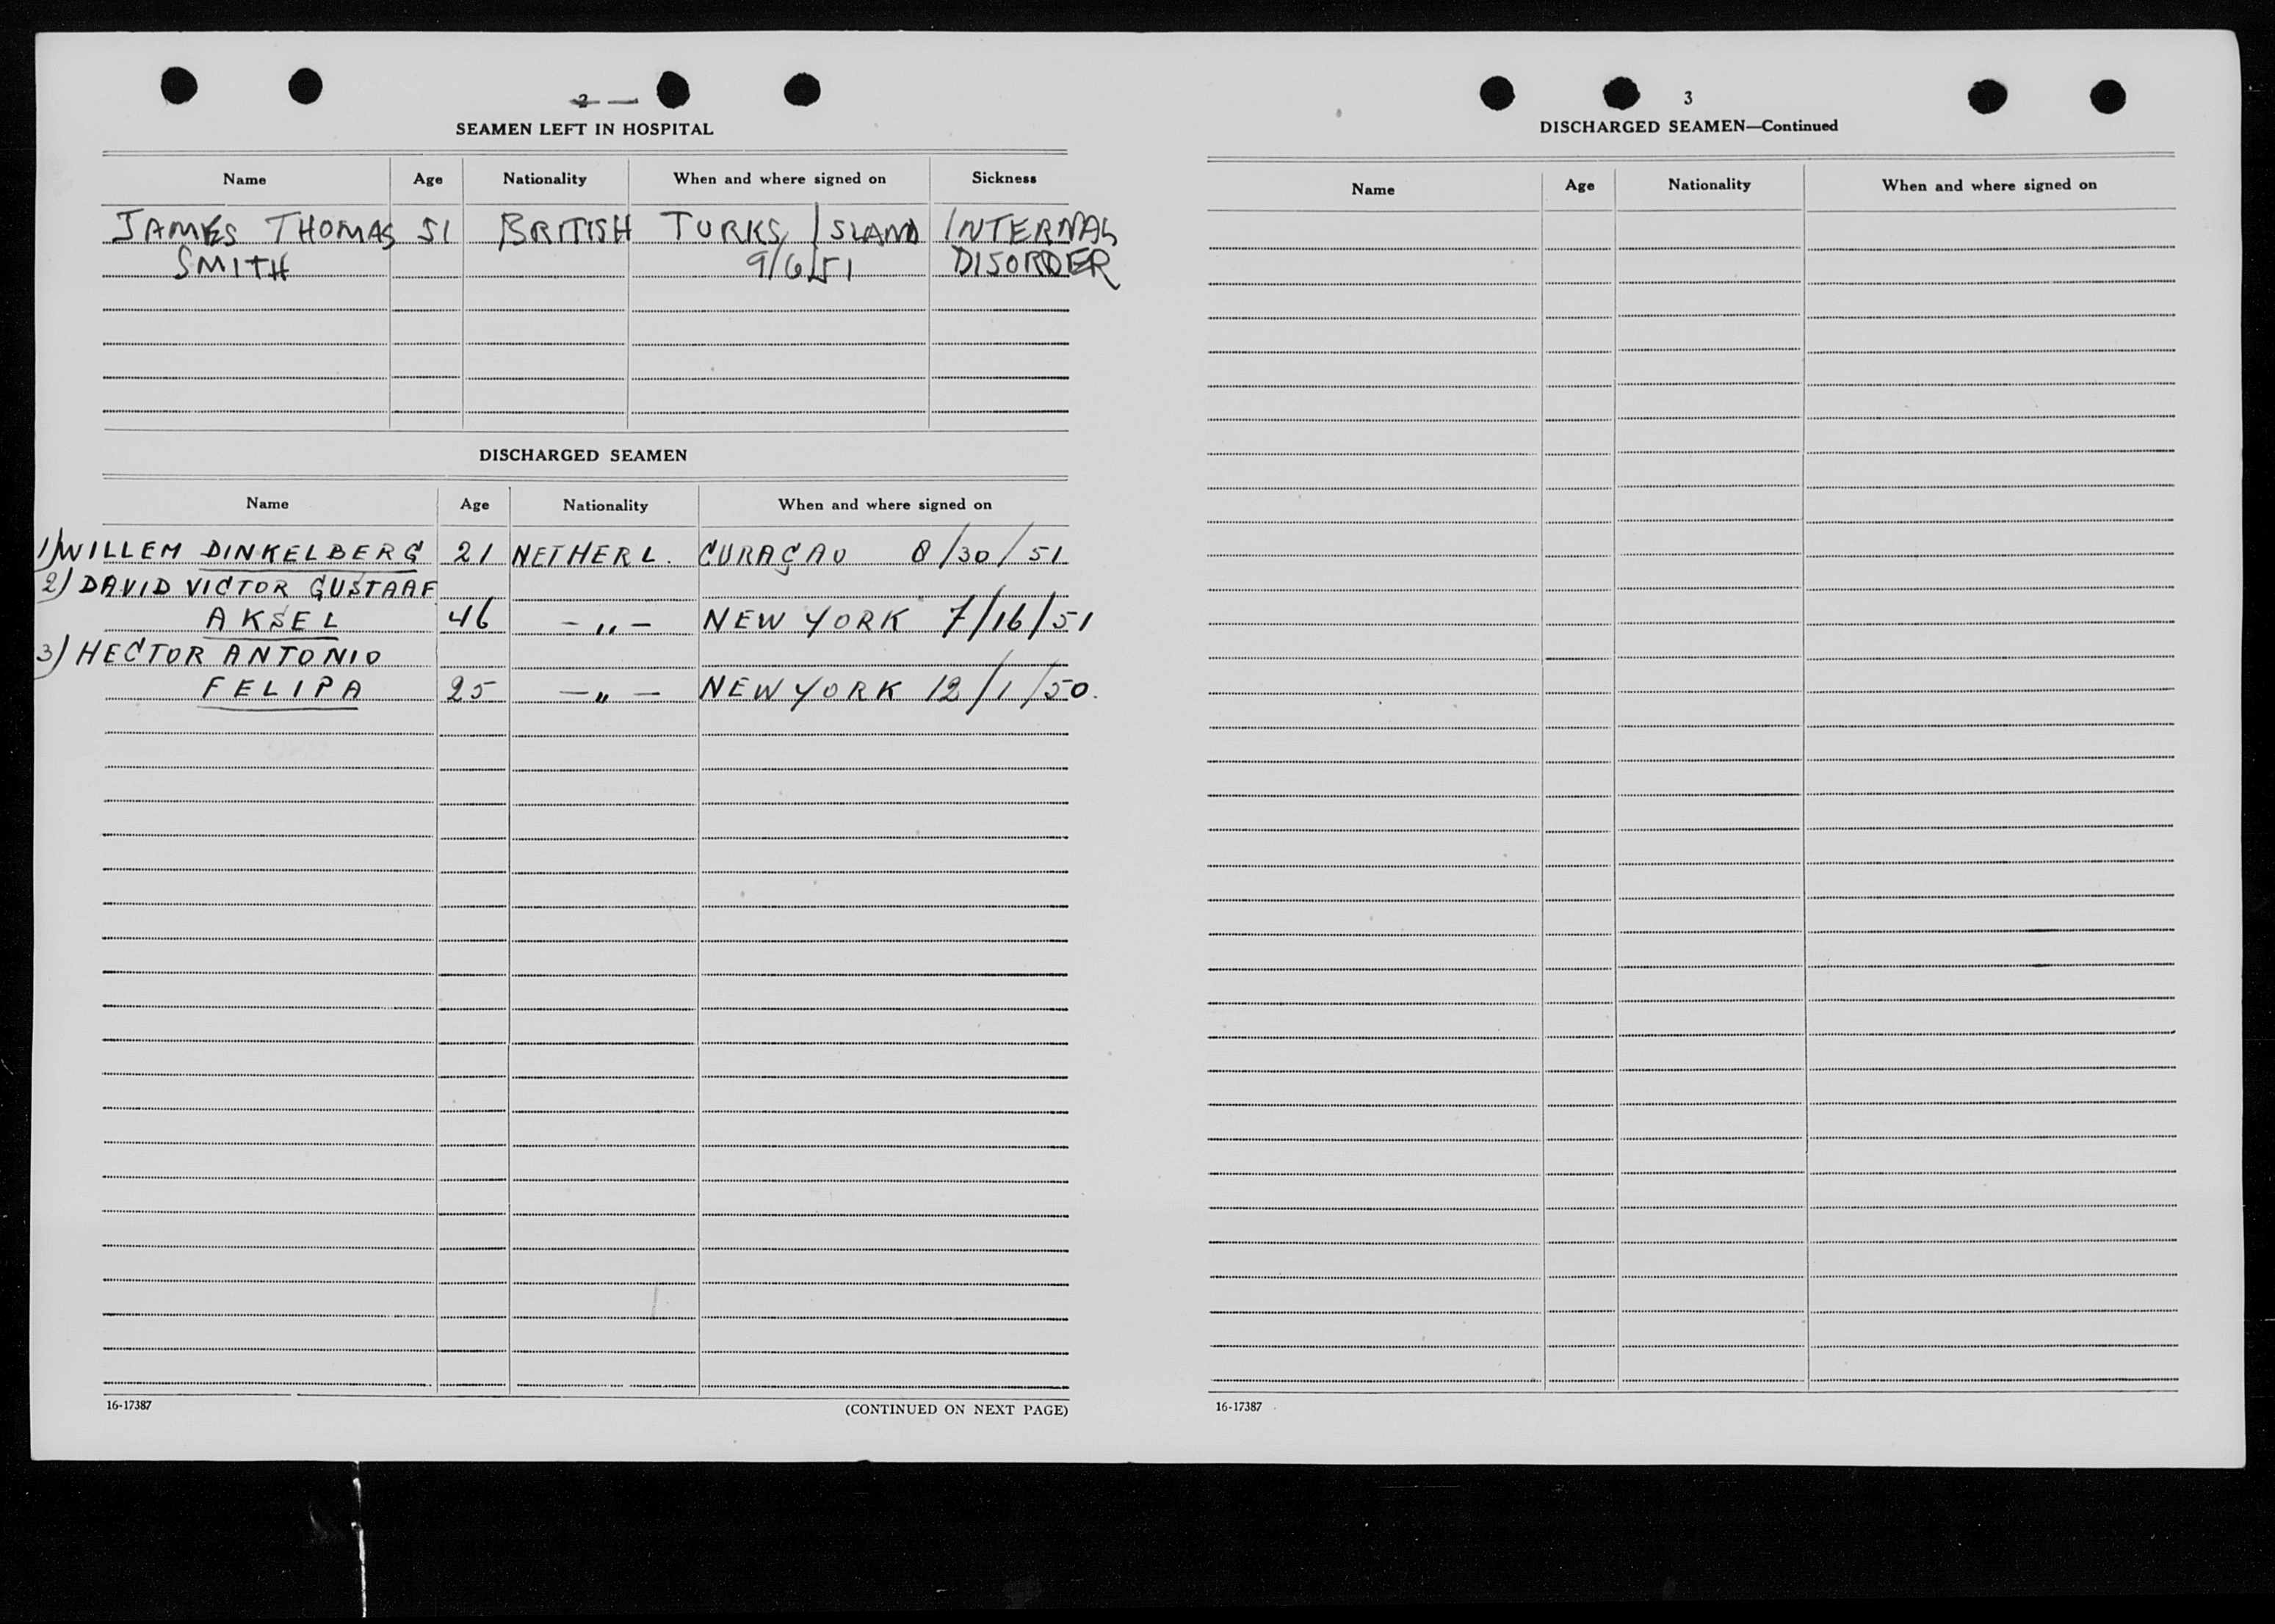 2 —
SEAMEN LEFT IN HOSPITAL
Name Age Nationality When and where signed on Sickness
JAMES THOMAS 51 BRITISH TURKS ISLAND INTERNAL
SMITH 9/6/51 DISORDER
DISCHARGED SEAMEN
Name Age Nationality When and where signed on
1) WILLEM DINKELBERG 21 NETHERL. CURAÇAO 8/30/51
2) DAVID VICTOR GUSTAAF
AKSEL 46 - " - NEW YORK 7/16/51
3) HECTOR ANTONIO
FELIPA 25 - " - NEW YORK 12/1/50.
16-17387 (CONTINUED ON NEXT PAGE)
3
DISCHARGED SEAMEN—Continued
Name Age Nationality When and where signed on
16-17387